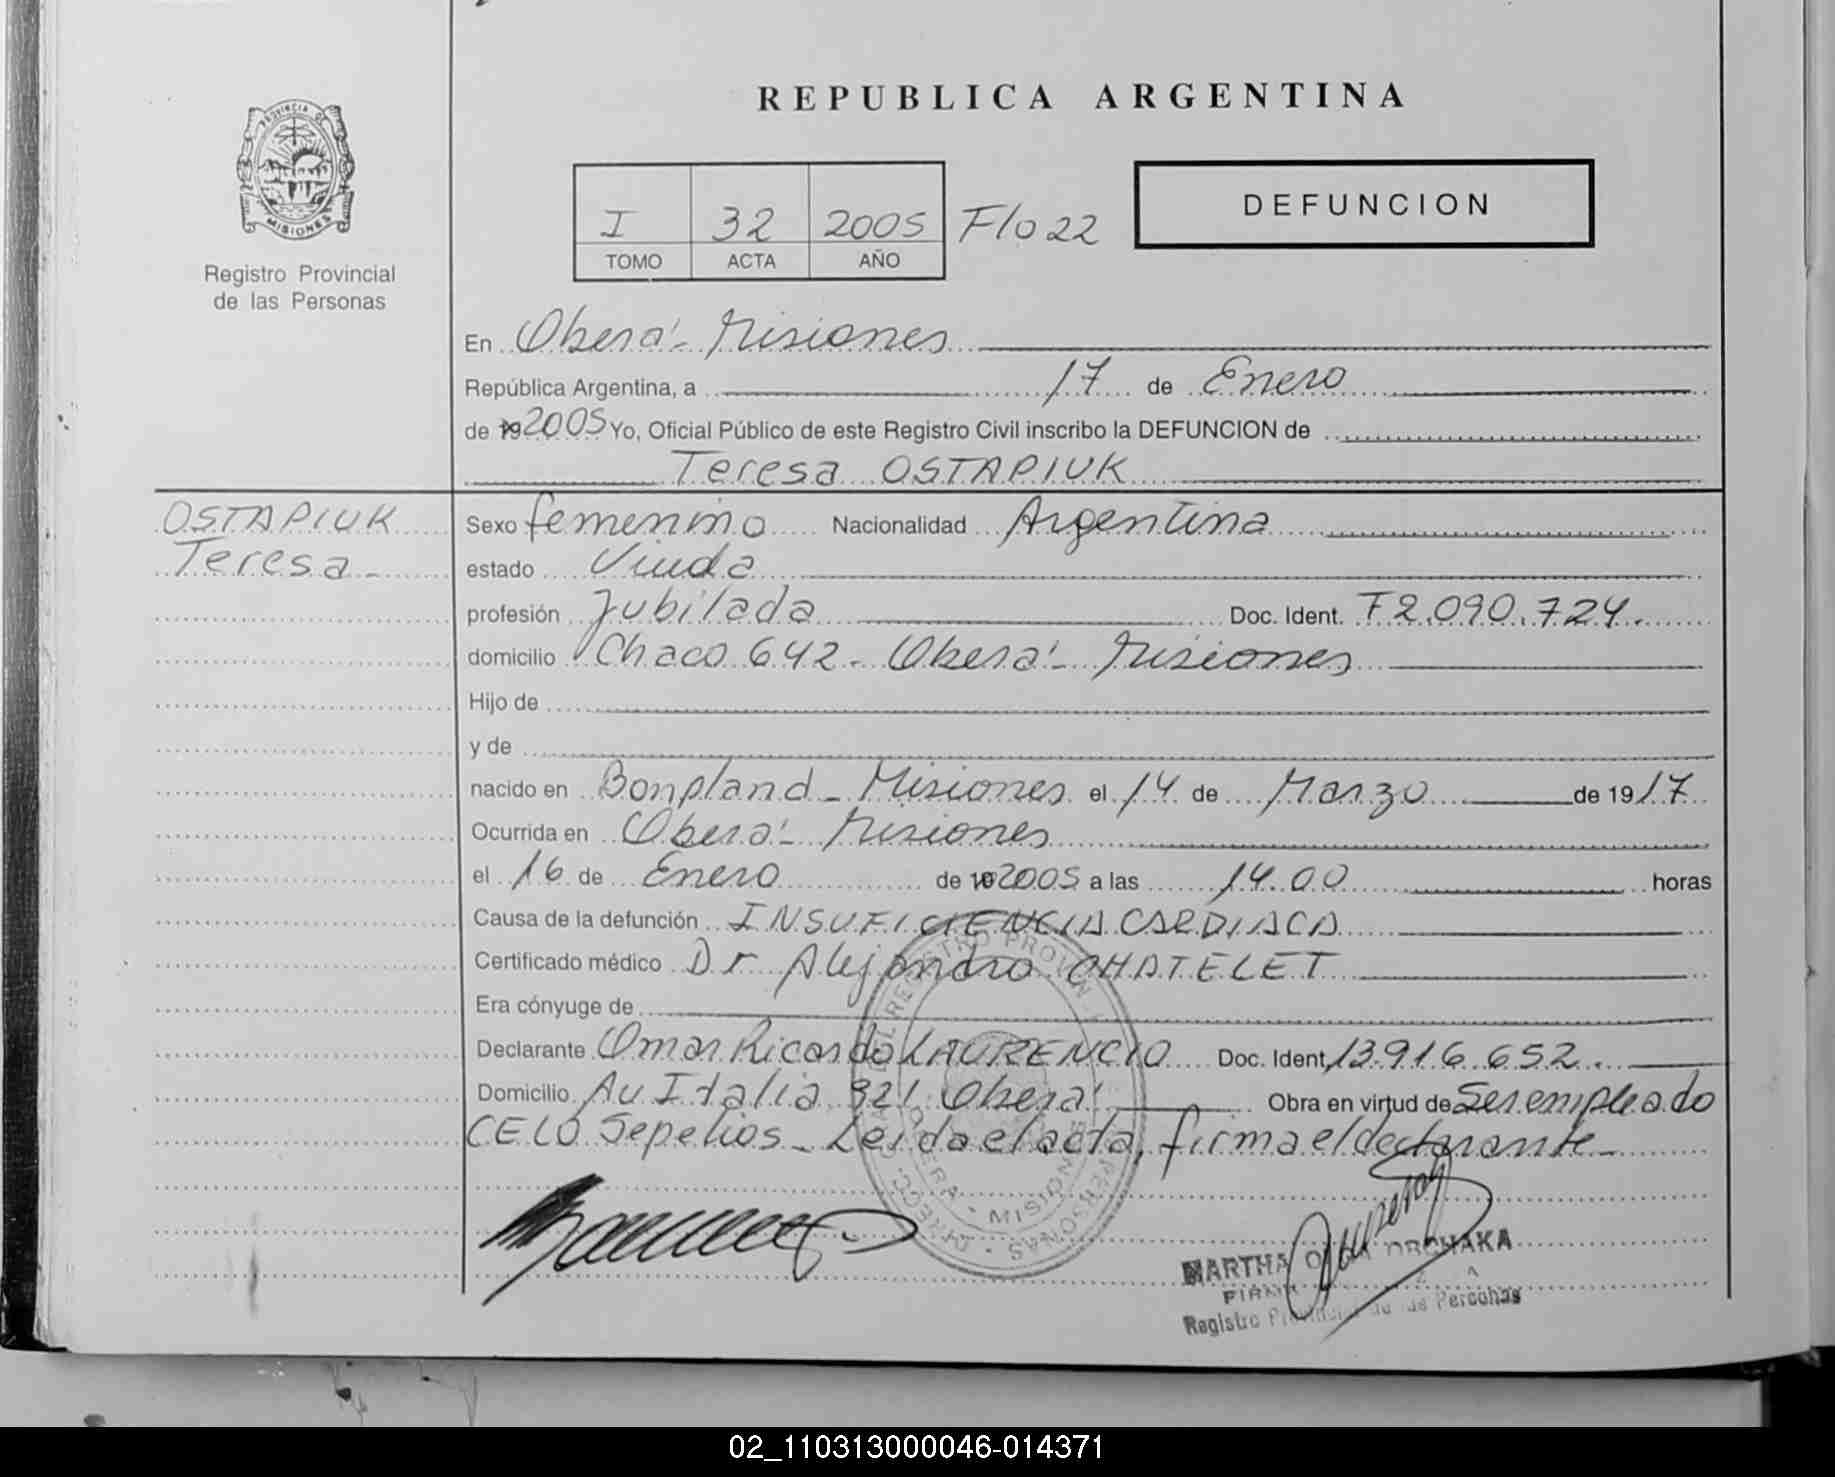 REPUBLICA ARGENTINA
PROVINCIA DE
MISIONES
Registro Provincial
de las Personas
I 32 2005 Flo 22
TOMO ACTA AÑO
DEFUNCION
En Oberá - Misiones
República Argentina, a 17 de Enero
de 19 2005 Yo, Oficial Público de este Registro Civil inscribo la DEFUNCION de
Teresa OSTAPIUK
OSTAPIUK
Teresa -
Sexo femenino Nacionalidad Argentina
estado Viuda
profesión Jubilada Doc. Ident. F 2.090.724.
domicilio Chaco 642 - Oberá - Misiones
Hijo de
y de
nacido en Bonpland - Misiones el 14 de Marzo de 1917
Ocurrida en Oberá - Misiones
el 16 de Enero de 2005 a las 14.00 horas
Causa de la defunción INSUFICIENCIA CARDIACA
Certificado médico Dr Alejandro CHATELET
Era cónyuge de
Declarante Omar Ricardo LAURENCIO Doc. Ident. 13.916.652.
Domicilio Av Italia 321 Oberá Obra en virtud de Ser empleado
CELO Sepelios - Leida el acta, firma el declarante -
MARTHA OLGA ORCHAKA
Registro Provincial de las Personas
02_110313000046-014371